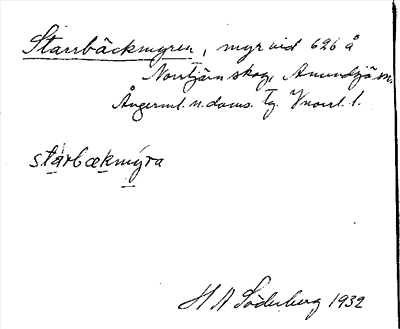 Starrbäckmyren, myr vid 626 å
Norrtjärn skog, Amundsjö sn.
Ångerml. n. doms. tg. Vnorrl. l.
starbækmýra
H A Söderberg 1932